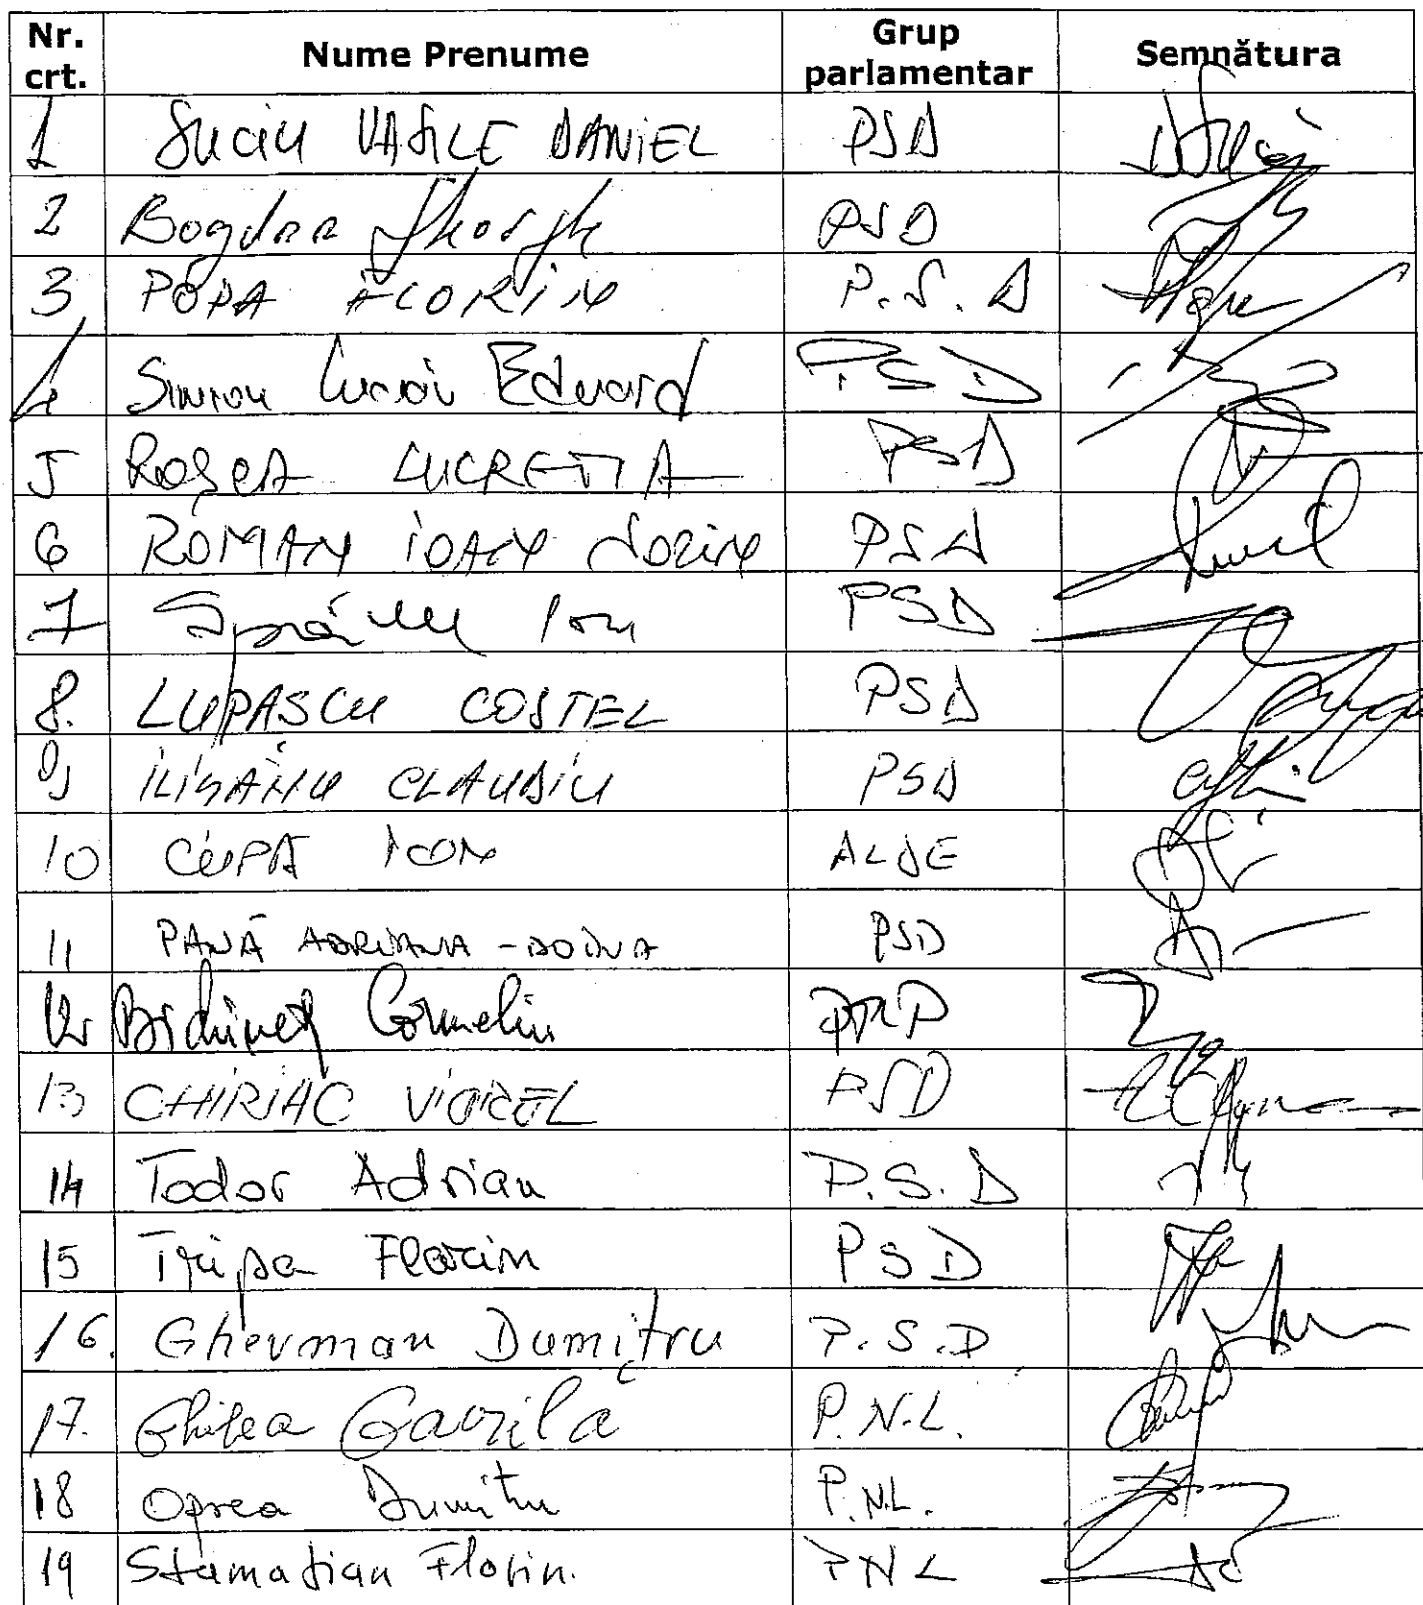 Nr. crt. Nume Prenume Grup parlamentar Semnătura
1 Suciu VASILE DANIEL PSD
2 Bogdan Gheorghe PSD
3 POPA FLORIN P.S.D
4 Simion Lucian Eduard PSD
5 ROȘCA LUCREȚIA PSD
6 ROMAN IOAN SORIN PSD
7 Spânu Ion PSD
8. LUPASCU COSTEL PSD
9 ILIȘANU CLAUDIU PSD
10 CUPA ION ALDE
11 PANĂ ADRIANA-DOINA PSD
12 Bichineț Corneliu PMP
13 CHIRIAC VIOREL PSD
14 Todor Adrian P.S.D
15 Tripa Florin PSD
16. Ghervman Dumitru P.S.D
17. Ghilea Gavrilă P.N.L.
18 Oprea Dumitru P.N.L.
19 Stamatian Florin. PNL